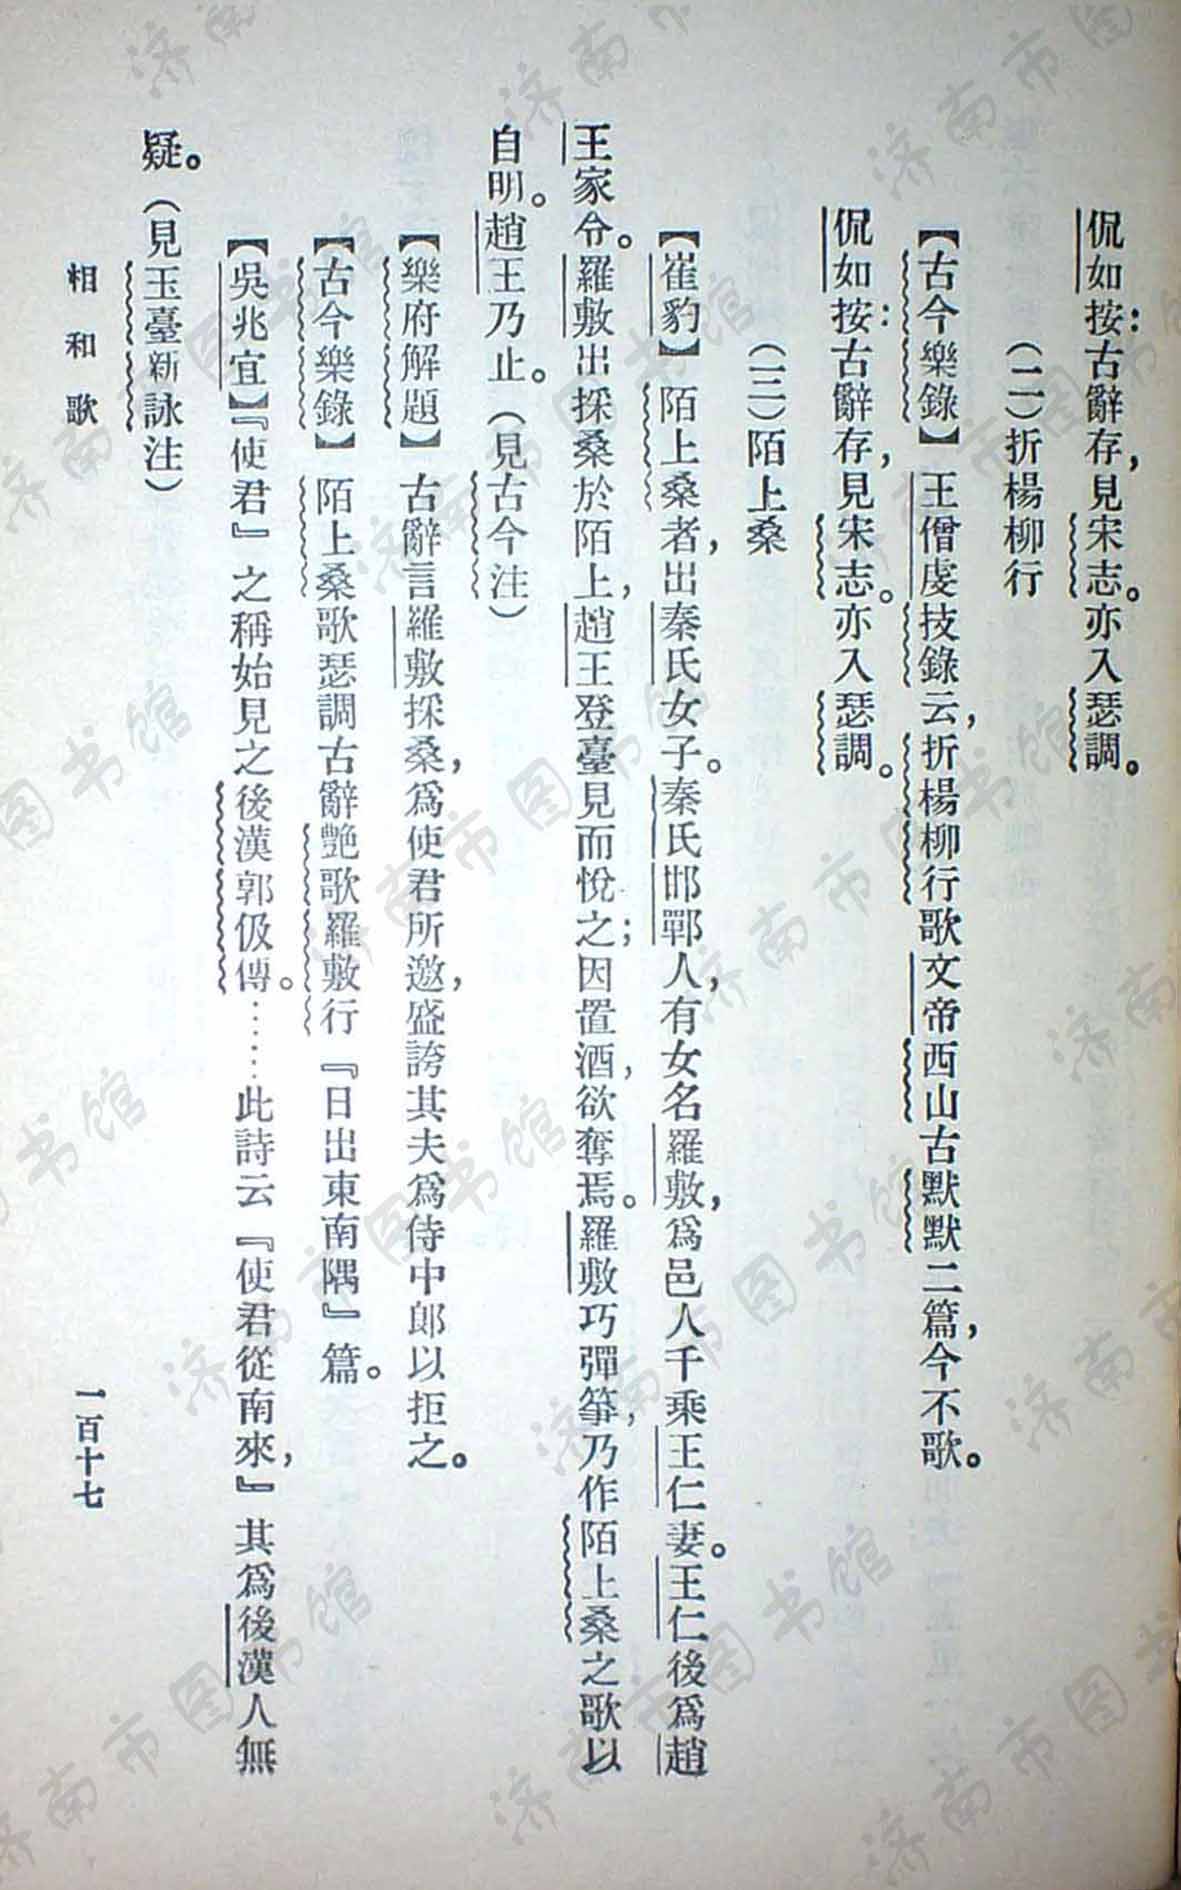 侃如按：古辭存，見宋志。亦入瑟調。
（二）折楊柳行
【古今樂錄】王僧虔技錄云，折楊柳行歌文帝西山古默默二篇，今不歌。
侃如按：古辭存，見宋志。亦入瑟調。
（三）陌上桑
【崔豹】陌上桑者，出秦氏女子。秦氏邯鄲人，有女名羅敷，爲邑人千乘王仁妻。王仁後爲趙
王家令。羅敷出採桑於陌上，趙王登臺見而悅之；因置酒，欲奪焉。羅敷巧彈箏，乃作陌上桑之歌以
自明。趙王乃止。（見古今注）
【樂府解題】古辭言羅敷採桑，爲使君所邀，盛誇其夫爲侍中郞以拒之。
【古今樂錄】陌上桑歌瑟調古辭艶歌羅敷行『日出東南隅』篇。
【吳兆宜】『使君』之稱始見之後漢郭伋傳。……此詩云『使君從南來，』其爲後漢人無
疑。（見玉臺新詠注）
相和歌
一百十七
济南市图书馆